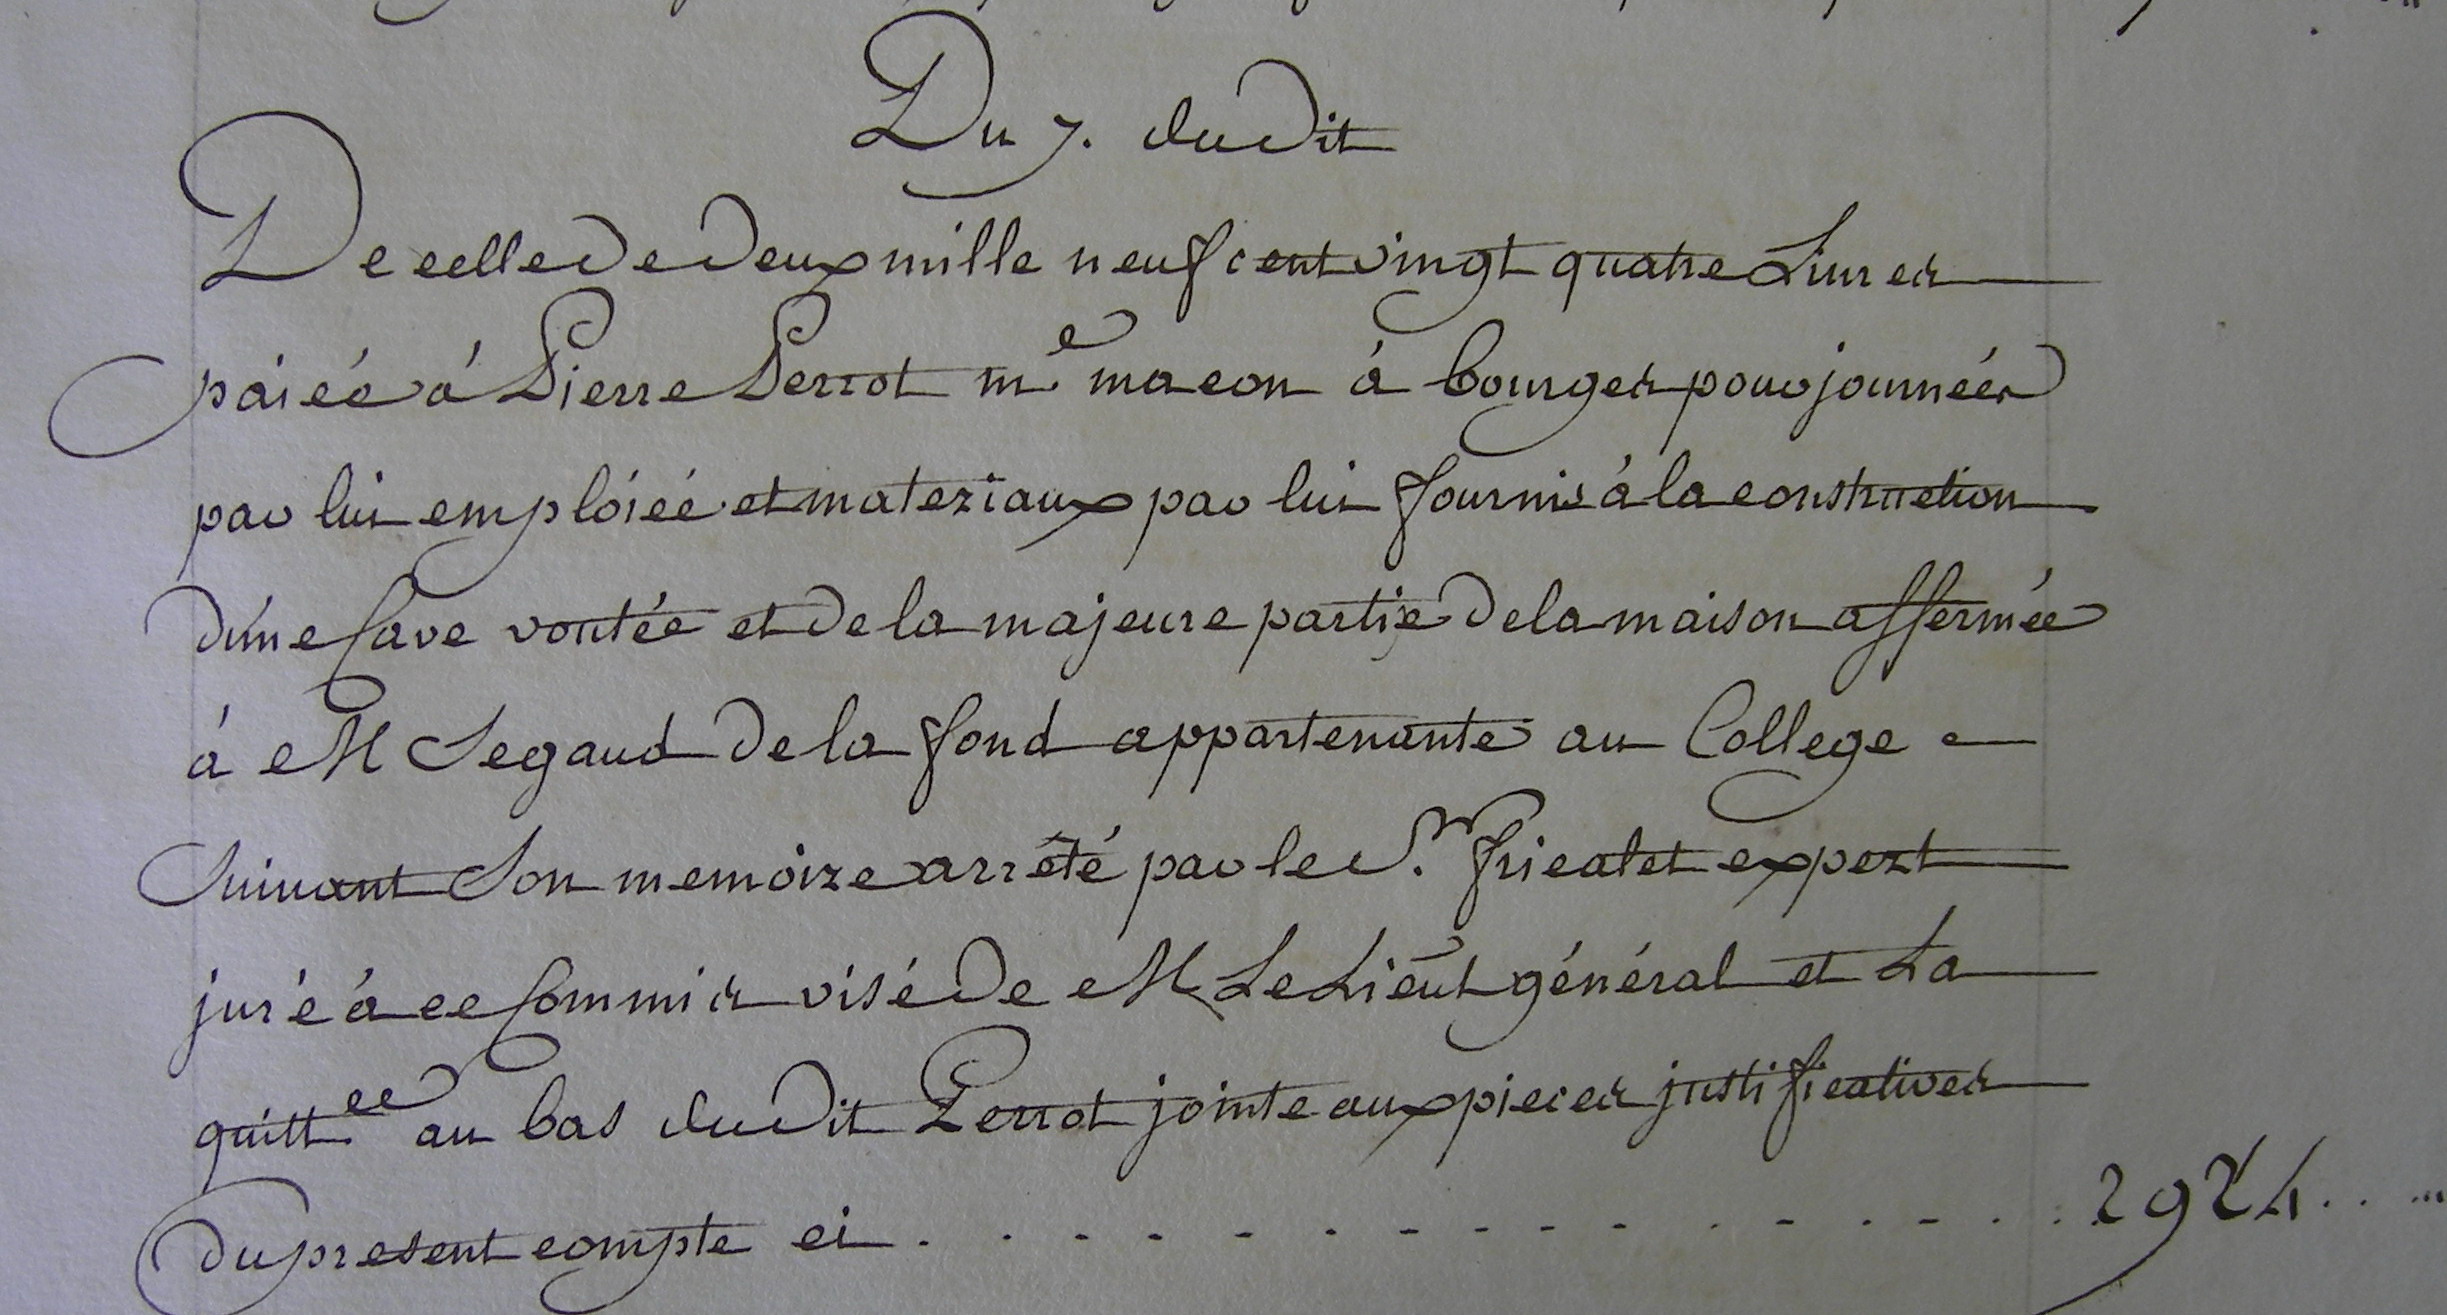 Du 7. dudit
De celle de deux mille neuf cent vingt quatre Livres
paiéé à Pierre Perrot me macon à bourges pour journéés
par lui emploiéé et materiaux par lui fournis à la construction
d'une Cave voutée et de la majeure partie de la maison affermée
à M Segaud de la fond appartenante au College
Suivant Son memoire arrêté par le Sr. fricalet expert
juré à ce Commis visé de M Le Lieut général et La
quittce au bas dudit Perrot jointe aux pieces justificatives
du present compte ci . . . . . . . . . . . . . . 2924 . . ...